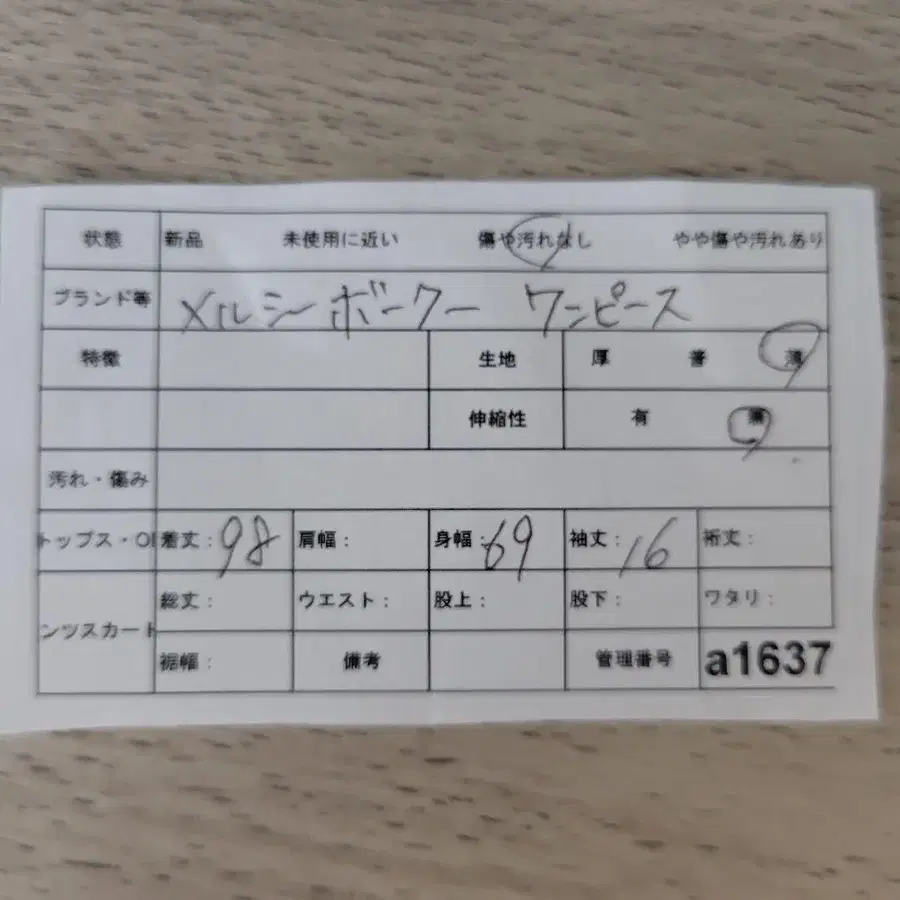 状態 新品 未使用に近い 傷や汚れなし やや傷や汚れあり
ブランド等 メルシーボークー ワンピース
特徴 生地 厚 普 薄
伸縮性 有 無
汚れ・傷み
トップス・OP 着丈：98 肩幅： 身幅：69 袖丈：16 裄丈：
ンツスカート 総丈： ウエスト： 股上： 股下： ワタリ：
裾幅： 備考 管理番号 a1637